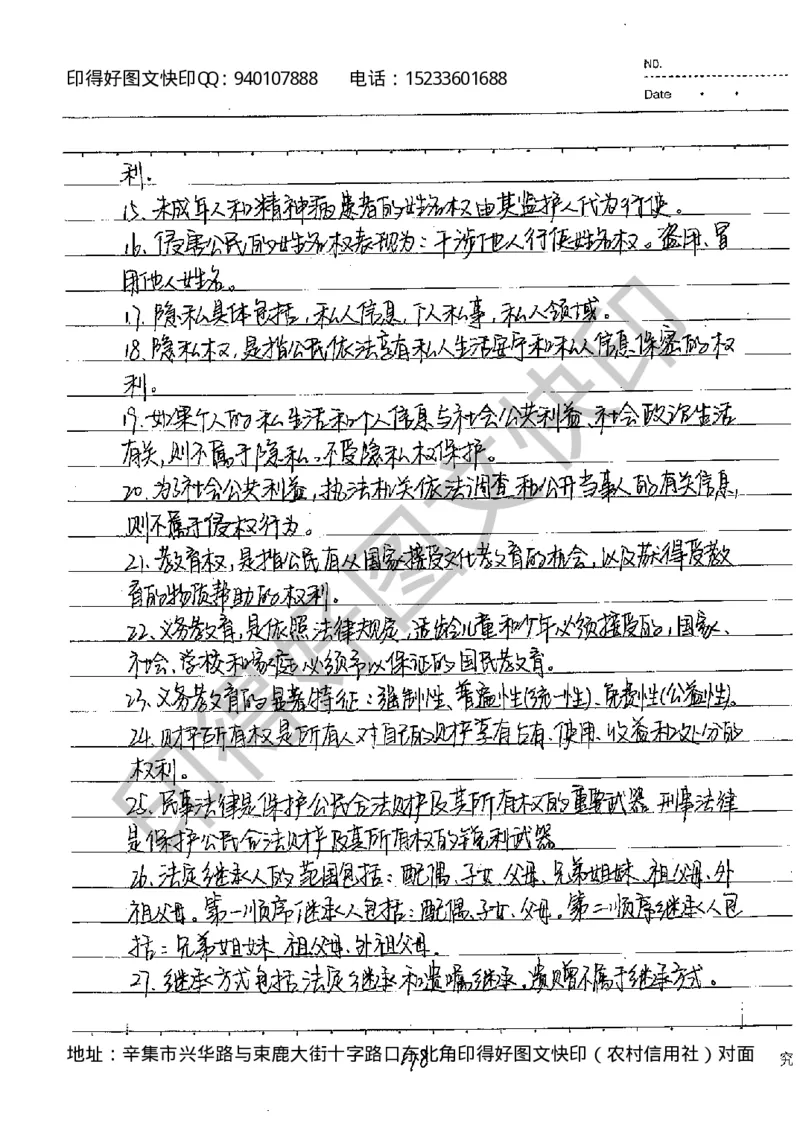 印得好图文快印QQ：940107888 电话：15233601688
NO.
Date
利。
15、未成年人和精神病患者的姓名权由其监护人代为行使。
16、侵害公民的姓名权表现为：干涉他人行使姓名权。盗用、冒
用他人姓名。
17、隐私具体包括，私人信息，个人私事，私人领域。
18、隐私权，是指公民依法享有私人生活安宁和私人信息保密的权
利。
19、如果个人的私生活和个人信息与社会公共利益、社会政治生活
有关，则不属于隐私。不受隐私权保护。
20、为了社会公共利益，执法机关依法调查和公开当事人的有关信息，
则不属于侵权行为。
21、教育权，是指公民有从国家接受文化教育的机会，以及获得受教
育的物质帮助的权利。
22、义务教育，是依照法律规定，适龄儿童和少年必须接受的，国家、
社会、学校和家庭必须予以保证的国民教育。
23、义务教育的显著特征：强制性、普遍性(统一性)、免费性(公益性)。
24、财产所有权是所有人对自己的财产享有占有、使用、收益和处分的
权利。
25、民事法律是保护公民合法财产及其所有权的重要武器 刑事法律
是保护公民合法财产及其所有权的锐利武器
26、法定继承人的范围包括：配偶、子女、父母、兄弟姐妹、祖父母、外
祖父母。第一顺序继承人包括：配偶、子女、父母。第二顺序继承人包
括：兄弟姐妹 祖父母、外祖父母。
27、继承方式包括法定继承和遗嘱继承。遗赠不属于继承方式。
地址：辛集市兴华路与束鹿大街十字路口东北角印得好图文快印（农村信用社）对面
究
印得好图文快印